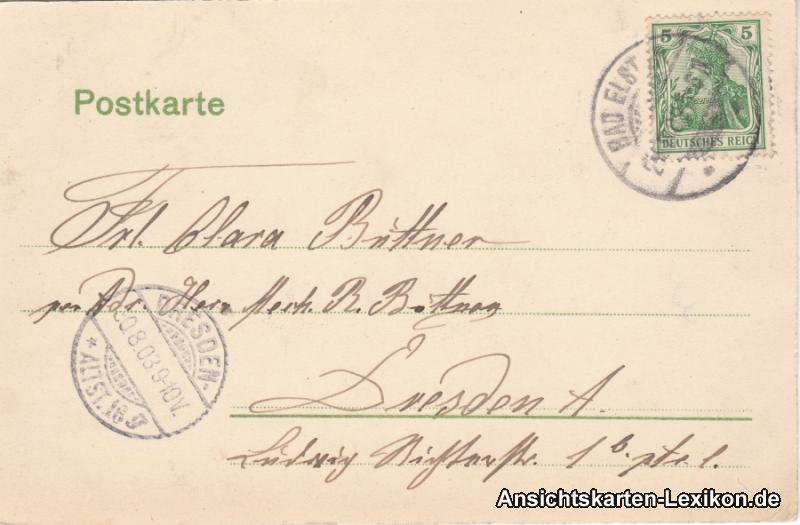 5 5
DEUTSCHES REICH
BAD ELST
Postkarte
Frl. Clara Büttner
per Adr. Herrn Mech. R. Büttner
DRESDEN-
8.03.9-10V.
* ALTST. 16 g
Dresden A.
Ludwig Richterstr. 1 b. ptr. l.
Ansichtskarten-Lexikon.de